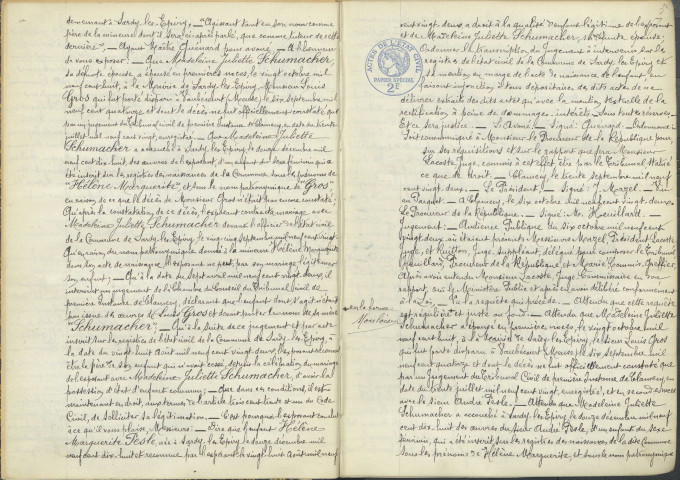 demeurant à Sardy-les-Epiry, - Agissant tant en son nom comme
père de la mineure dont il sera ci-après parlé, que comme tuteur de cette
dernière". - Ayant Maître Guenard pour avoué. - A l'honneur
de vous exposer: - Que Madeleine Juliette Schumacher,
sa défunte épouse, a épousé en premières noces, le vingt octobre mil
neuf cent huit, à la Mairie de Sardy-les-Epiry, Monsieur Louis
Gros qui fut porté disparu à Vaubécourt (Meuse) le six septembre mil
neuf cent quatorze et dont le décès ne fut officiellement constaté que
par un jugement du Tribunal civil de première Instance de Clamecy, en date du huit
juillet mil neuf cent vingt, enregistré. - Que Madeleine Juliette
Schumacher a accouché à Sardy-les-Epiry, le douze décembre mil
neuf cent dix-huit des œuvres de l'exposant, d'un enfant du sexe féminin qui a
été inscrit sur les registres des naissances de la Commune, sous les prénoms de
"Hélène Marguerite", et sous le nom patronymique de "Gros"
en raison de ce que le décès de Monsieur Gros n'était pas encore constaté;
Qu'après la constatation de ce décès, l'exposant contracta mariage avec
Madeleine Juliette Schumacher devant l'officier de l'état civil
de la Commune de Sardy-les-Epiry, le vingt cinq septembre mil neuf cent vingt.
Qu'en raison du nom patronymique donné à la mineure Hélène Marguerite
dans son acte de naissance, l'exposant ne put, par son mariage, légitimer
son enfant; - Qu'à la date du sept avril mil neuf cent vingt deux, il
intervint un jugement de la Chambre du Conseil du Tribunal Civil de
première Instance de Clamecy, déclarant que l'enfant dont s'agit n'était
pas issue des œuvres de Louis Gros et devait porter le nom de sa mère
"Schumacher"; - Qu'à la suite de ce jugement et par acte
inscrit sur les registres de l'état civil de la Commune de Sardy-les-Epiry, à
la date du vingt huit Août mil neuf cent vingt deux, l'exposant reconnut
être le père de cet enfant qui n'avait cessé, depuis la célébration du mariage
de l'exposant avec Madeleine Juliette Schumacher, d'avoir la
possession d'état d'enfant commun; - Que dans ces conditions, il est
maintenant en droit, aux termes de l'article trois cent trente et un du Code
Civil, de solliciter sa légitimation. - C'est pourquoi l'exposant conclut
à ce qu'il vous plaise, Messieurs: - Dire que l'enfant Hélène
Marguerite Pesle, née à Sardy-les-Epiry le douze décembre mil
neuf cent dix-huit et reconnue par l'exposant le vingt huit Août mil neuf
ACTES DE L'ÉTAT CIVIL
PAPIER SPÉCIAL
2F
cent vingt deux a droit à la qualité d'enfant légitime de l'exposant
et de Madeleine Juliette Schumacher, sa défunte épouse.
Ordonner la transcription du Jugement à intervenir sur les
registres de l'état civil de la Commune de Sardy-les-Epiry et
sa mention en marge de l'acte de naissance de l'enfant, en
faisant injonction à tous dépositaires des dits actes de ne
délivrer extraits des dits actes qu'avec la mention textuelle de la
rectification à peine de dommages-intérêts. Sous toutes réserves.
Et ce sera justice. - L'Avoué. - Signé: Guenard. - Ordonnance:
Soit communiqué à Monsieur le Procureur de la République pour
sur ses réquisitions et sur le rapport que fera Monsieur
Lacoste Juge, commis à cet effet être par le Tribunal statué
ce que de droit. - Clamecy, le trente septembre mil neuf
cent vingt deux. - Le Président. - Signé: J. Mazel. - Vu
au Parquet. - à Clamecy, le six octobre mil neuf cent vingt deux.
Le Procureur de la République. - Signé: Mr. Houillard. -
Jugement: - Audience Publique du six octobre mil neuf cent
vingt deux où étaient présents: Messieurs Mazel, Président, Lacoste
Juge, et Ruitton, Juge suppléant, délégué pour composer le Tribunal,
Houillard, Procureur de la République et Marié Commis-Greffier.
Après avoir entendu Monsieur Lacoste Juge Commissaire en son
rapport, ouï le Ministère Public et après en avoir délibéré conformément
à la loi. - Vu la requête qui précède. - Attendu que cette requête
est régulière et juste au fond. - Attendu que Madeleine Juliette
Schumacher a épousé en premières noces, le vingt octobre mil
neuf cent huit, à la Mairie de Sardy-les-Epiry, le sieur Louis Gros
qui fut porté disparu à Vaubécourt Meuse, le six septembre mil
neuf cent quatorze et dont le décès ne fut officiellement constaté que
par un Jugement du Tribunal Civil de première Instance de Clamecy, en
date du huit juillet mil neuf cent vingt, enregistré, et en secondes noces
avec le sieur André Pesle. - Attendu que Madeleine Juliette
Schumacher a accouché à Sardy-les-Epiry, le douze décembre mil neuf
cent dix-huit des œuvres du sieur André Pesle, d'un enfant du sexe
féminin, qui a été inscrit sur les registres des naissances de la dite Commune
sous les prénoms de "Hélène Marguerite", et sous le nom patronymique